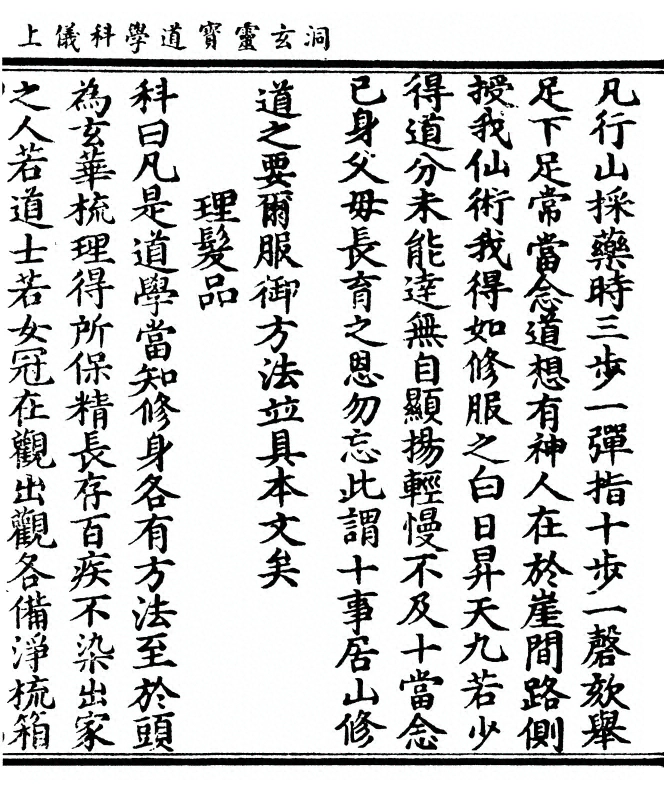 洞玄靈寶道學科儀上
凡行山採藥時三步一彈指十步一磬欬舉
足下足常當念道想有神人在於崖間路側
授我仙術我得如修服之白日昇天九若少
得道分未能達無自顯揚輕慢不及十當念
已身父母長育之恩勿忘此謂十事居山修
道之要爾服御方法並具本文矣
理髮品
科曰凡是道學當知修身各有方法至於頭
為玄華梳理得所保精長存百疾不染出家
之人若道士若女冠在觀出觀各備淨梳箱